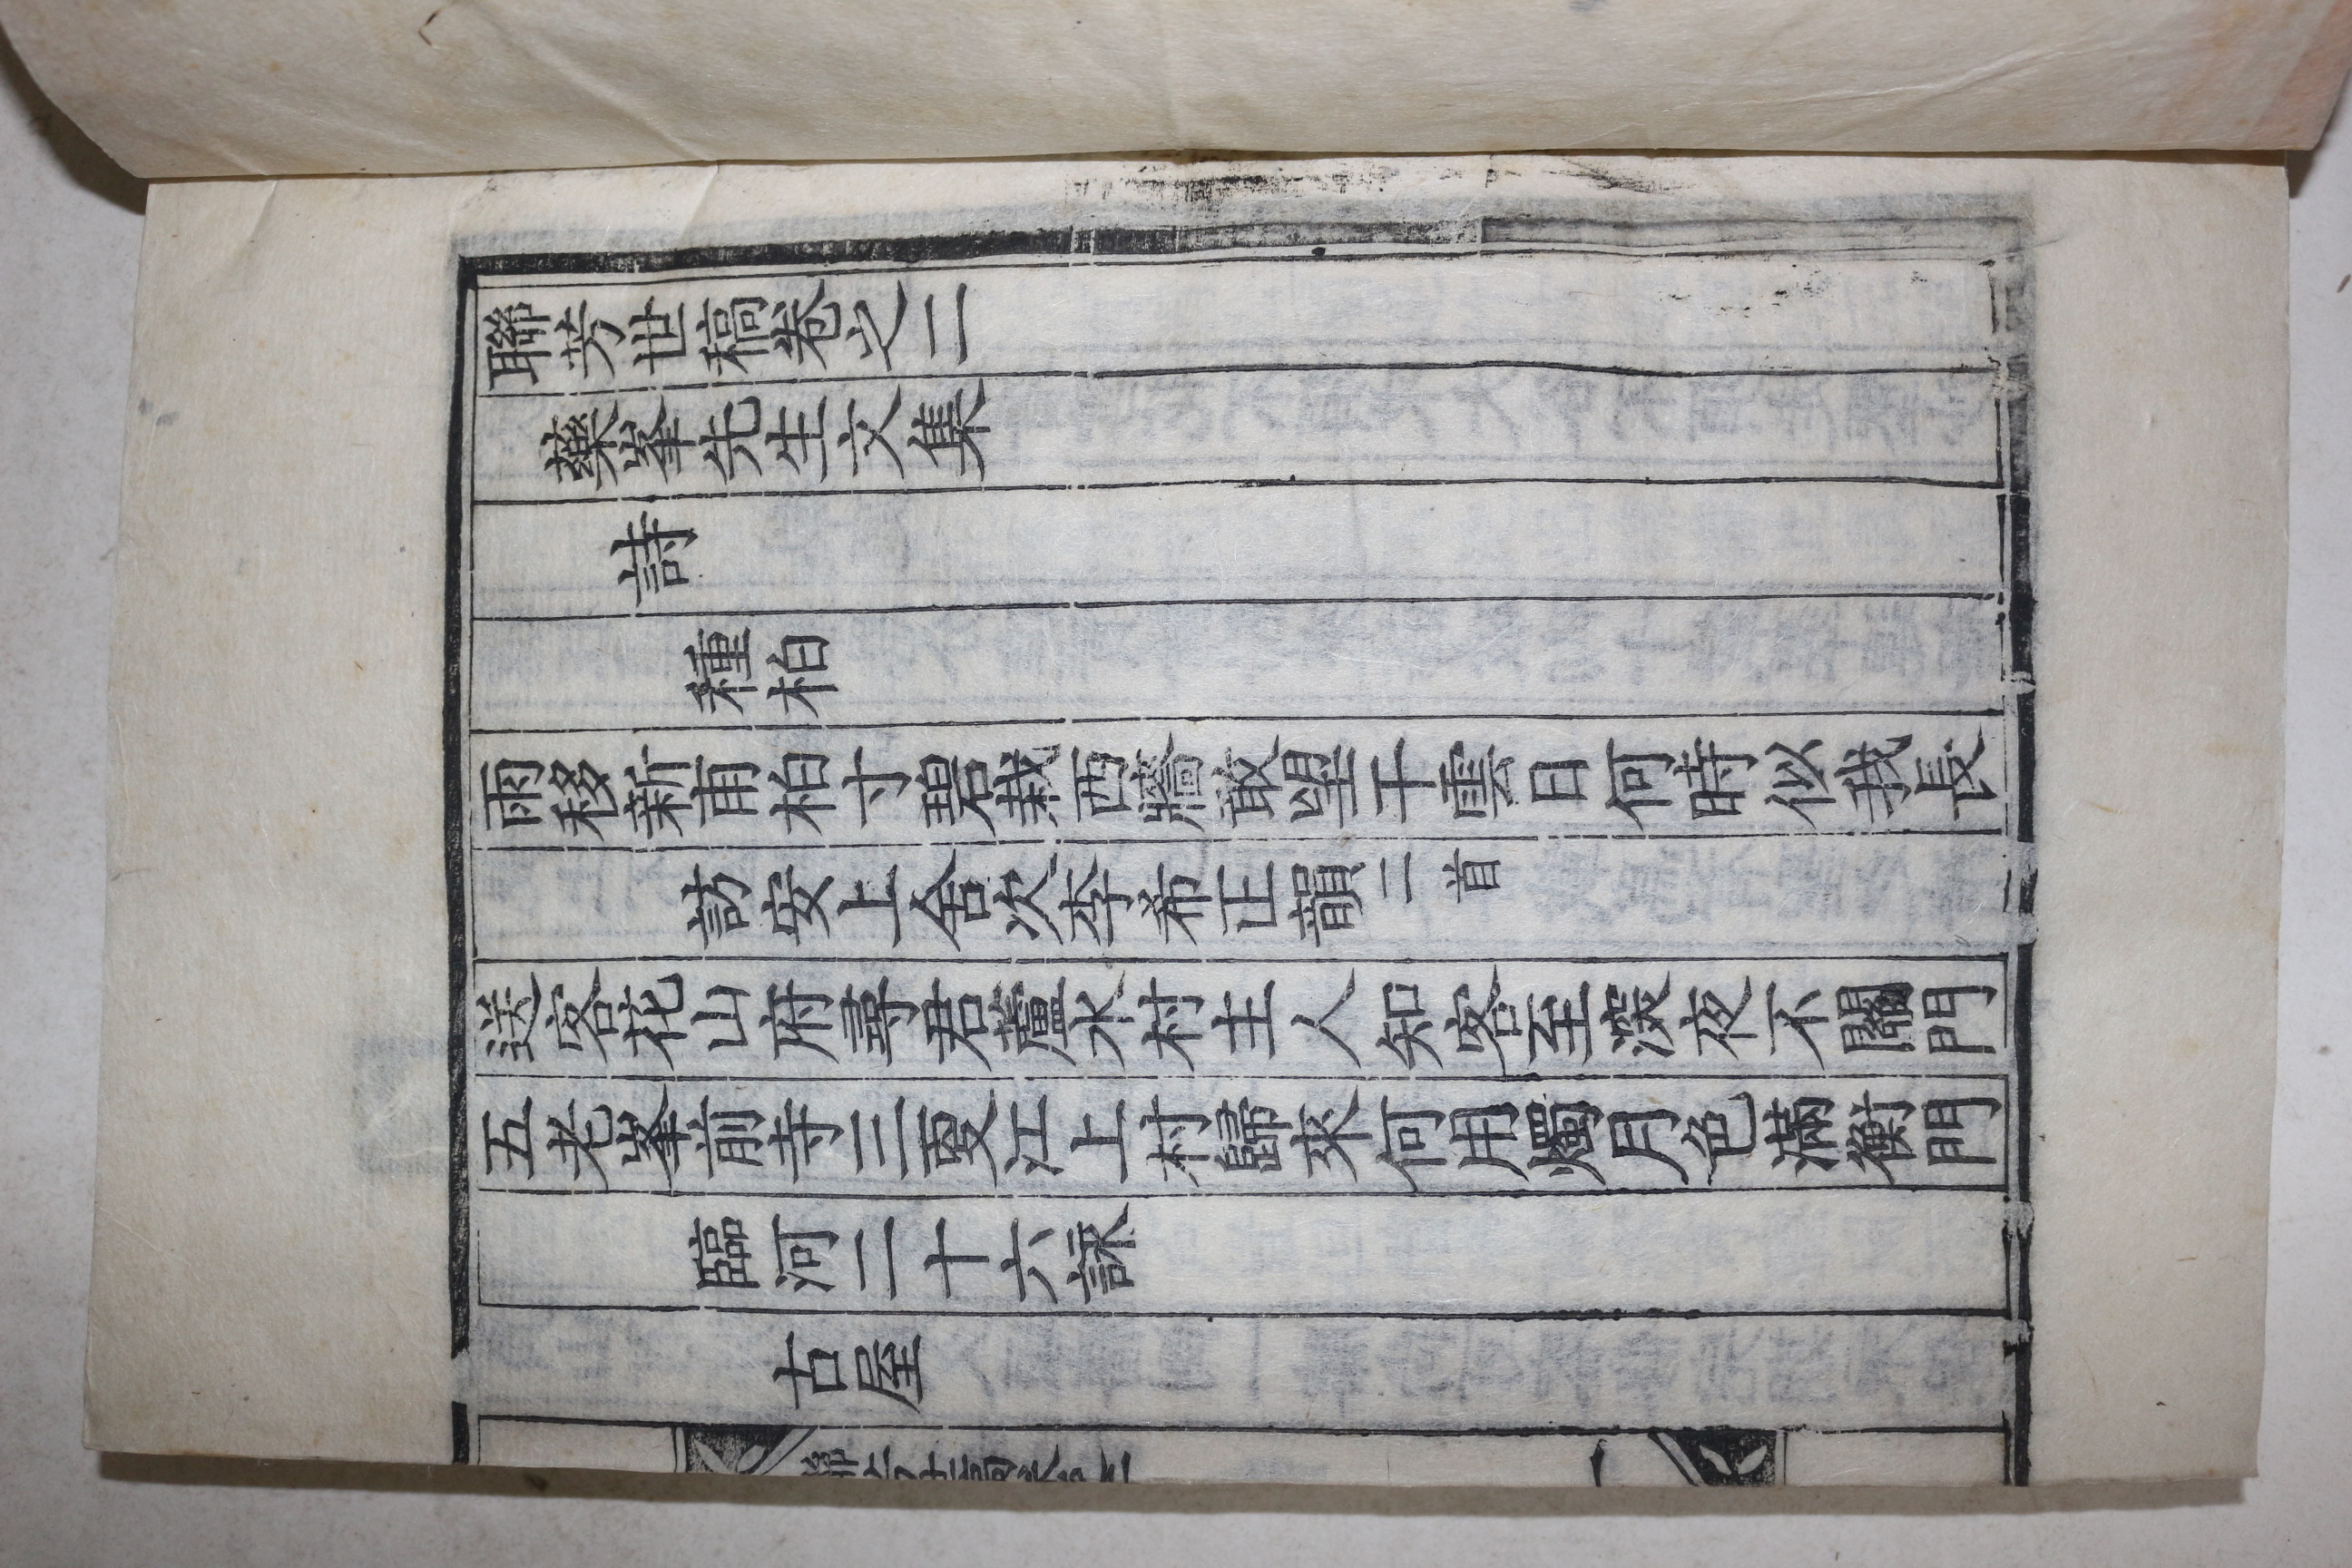 聯芳世稿卷之二
藥峯先生文集
詩
種柏
雨移新甫柏寸碧栽西牆敢望干雲日何時似我長
訪安上舍次李希正韻二首
送客花山府尋君蘆水村主人知客至深夜不關門
五老峯前寺三更江上村歸來何用燭月色滿衡門
臨河二十六詠
古屋